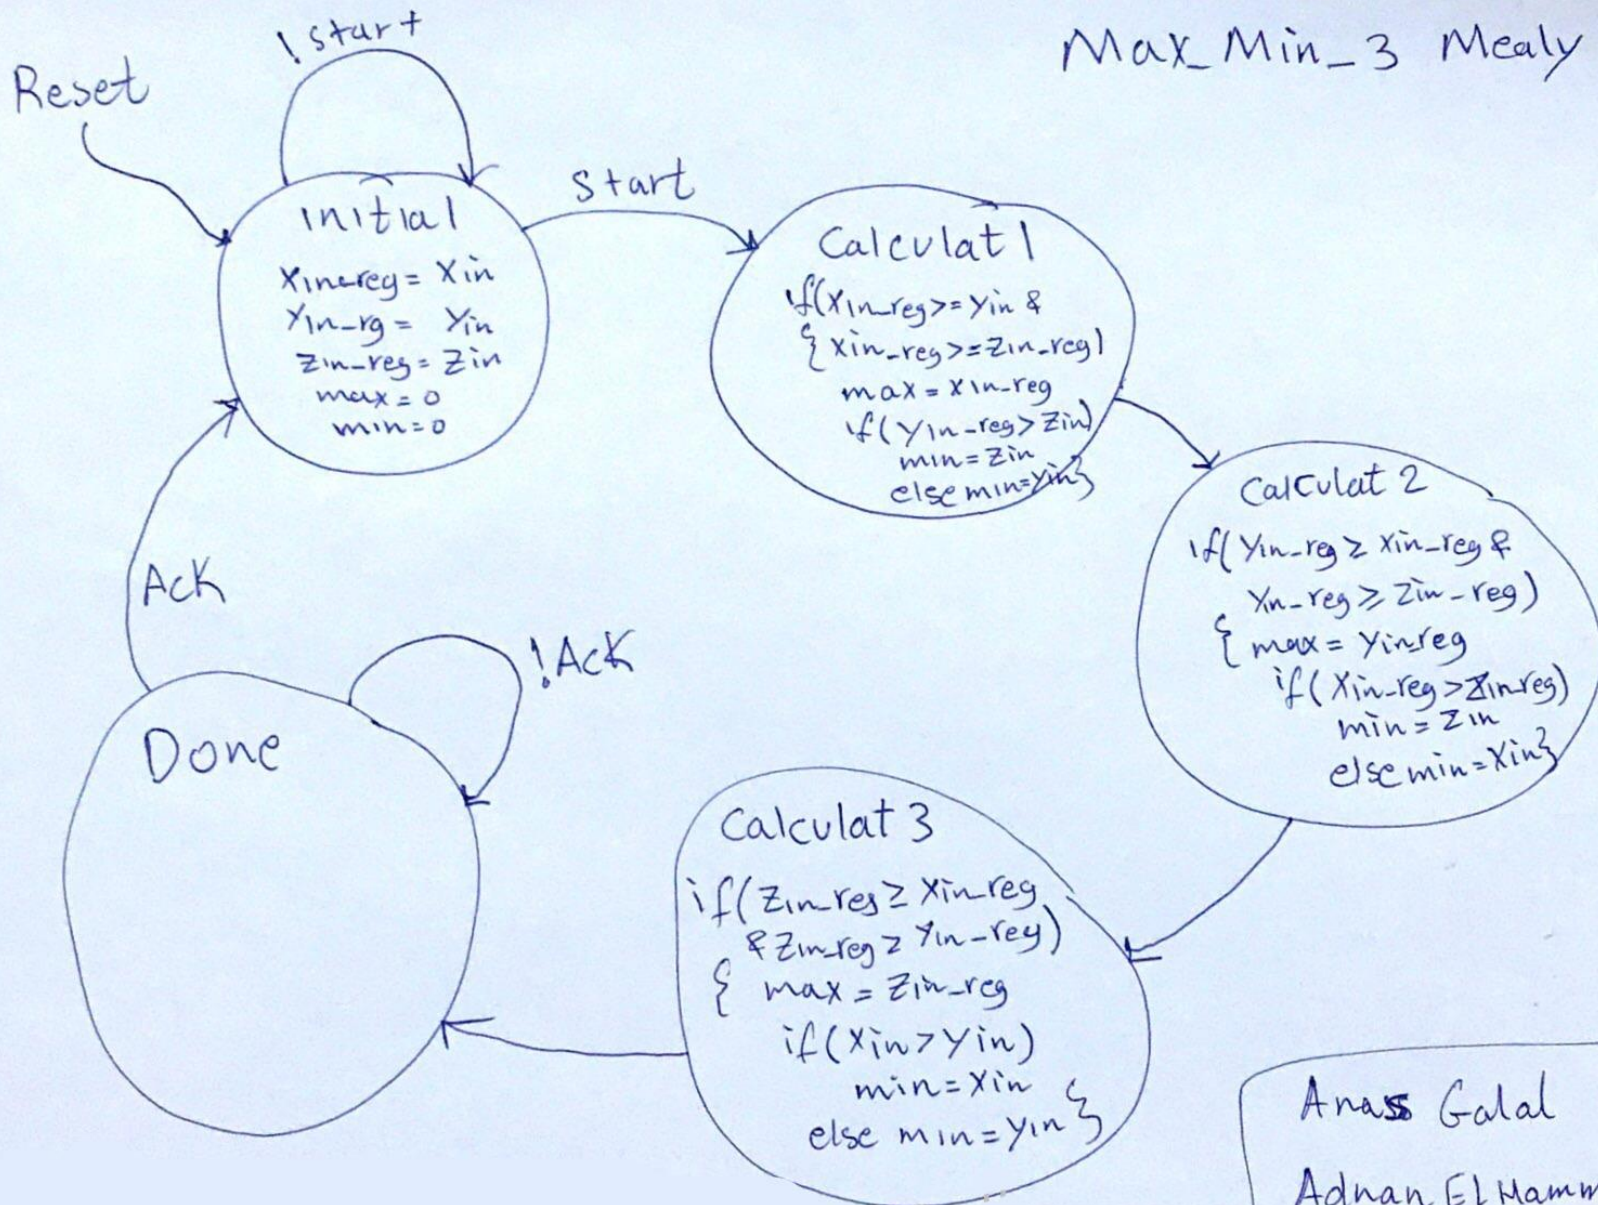 Max_Min_3 Mealy
!start
Reset
start
initial
Xin_reg = Xin
Yin_rg = Yin
Zin_reg = Zin
max = 0
min = 0
Calculat 1
if(Xin_reg>=Yin &
{ Xin_reg>=Zin_reg)
max = Xin_reg
if(Yin_reg > Zin)
min = Zin
else min=Yin}
Calculat 2
if(Yin_reg ≥ Xin_reg &
Yin_reg ≥ Zin_reg)
{ max = Yin_reg
if(Xin_reg >Zin_reg)
min = Zin
else min = Xin}
Calculat 3
if(Zin_reg ≥ Xin_reg
& Zin_reg ≥ Yin_reg)
{ max = Zin_reg
if(Xin > Yin)
min = Xin
else min = Yin }
Done
!Ack
Ack
Anass Galal
Adnan El Mamm